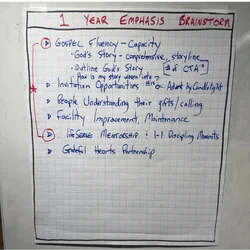 1 YEAR EMPHASIS BRAINSTORM
GOSPEL FLUENCY - CAPACITY
• God's Story - comprehensive storyline
• Outline God's Story
How is my story woven into?
Invitation Opportunities Advent by Candlelight
People Understanding their gifts/calling
Facility Improvement, Maintenance
LifeServe Mentorship 1-1 Discipling Moments
Grateful Hearts Partnership